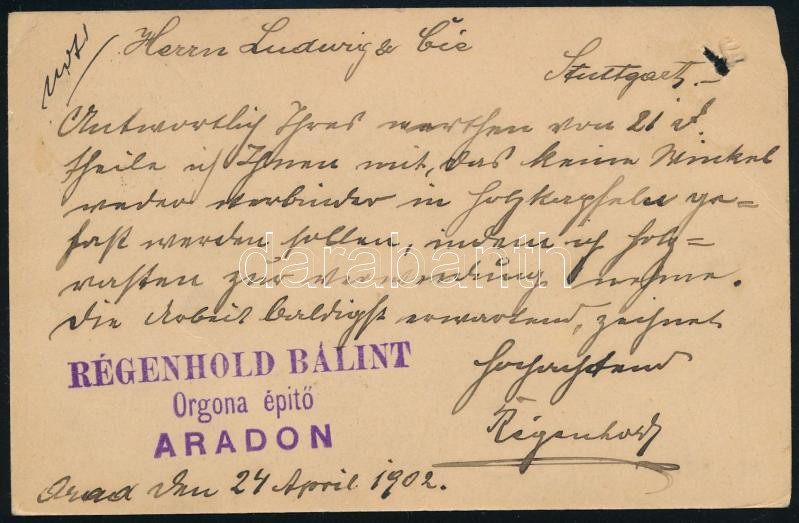 Herrn Ludwig & Cie
Stuttgart.
Antwortlich Ihres werthen von 21 d.
theile ich Ihnen mit, das keine Winkel
weder verbinder in holzkapfeln ge=
fast werden sollen, indem ich holz=
rasten zur verwendung nehme.
Die Arbeit baldigst erwartend, zeichnet
hochachtend
Régenhold
RÉGENHOLD BÁLINT
Orgona építő
ARADON
Arad den 24 April 1902.
darabanth